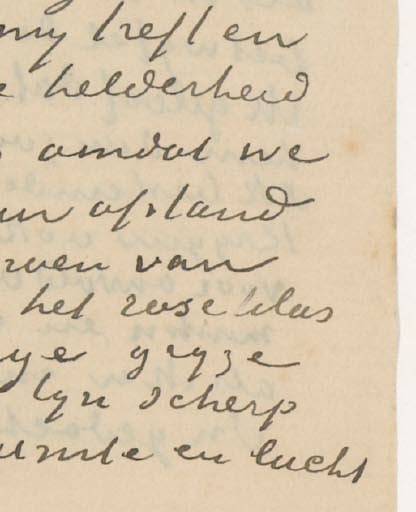 my treft en
helderheid
omdat we
un afstand
roen van
het rose blas
ge gryze
lyn scherp
uimte en lucht